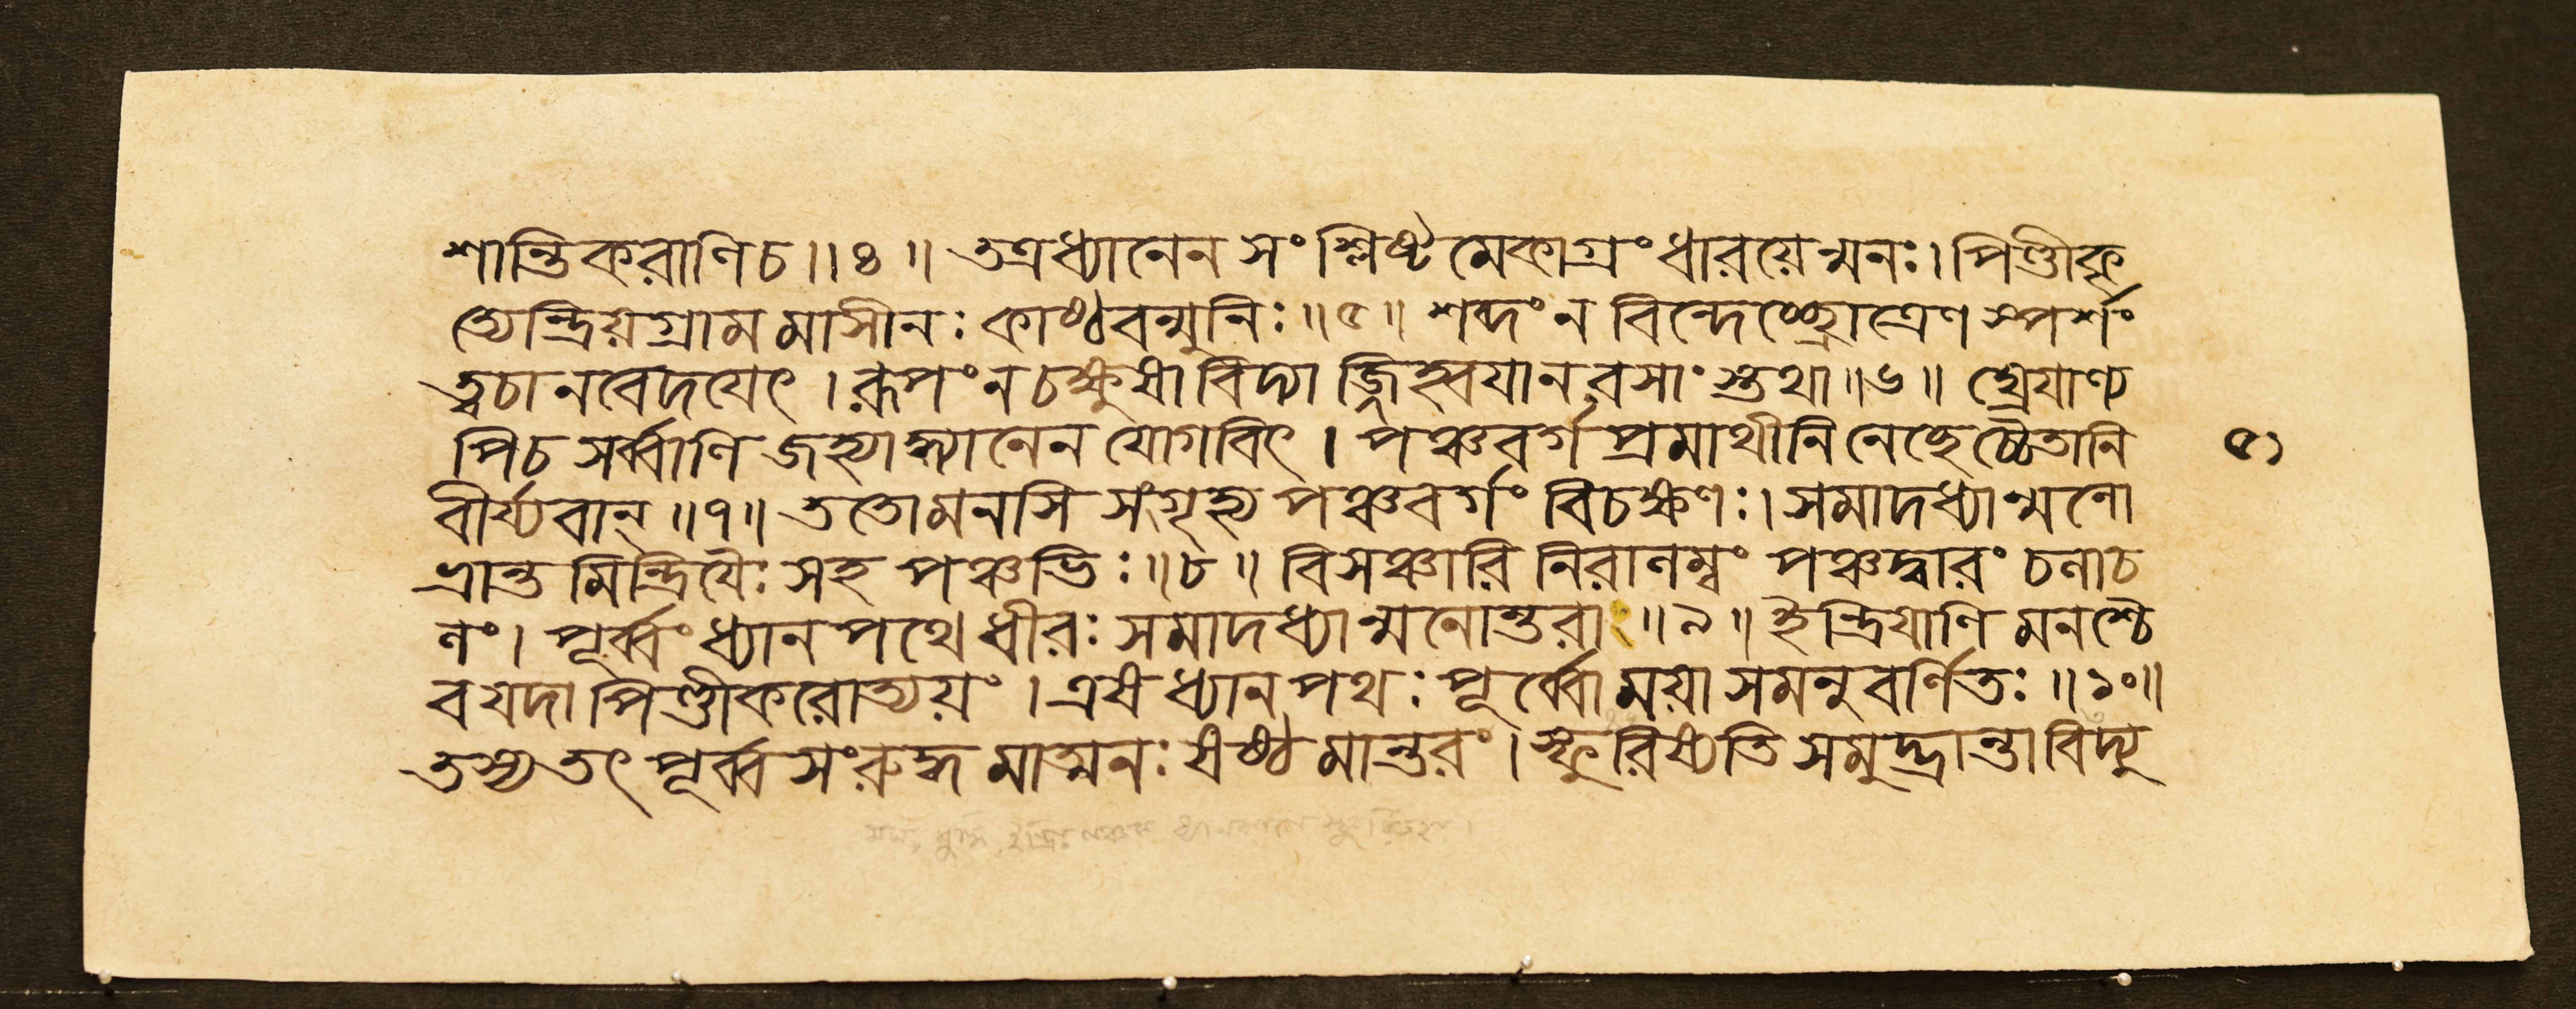 শান্তিকরাণিচ॥৪॥ তত্রধ্যানেন সংশ্লিষ্টমেকাগ্রং ধারয়েন্মনঃ। পিণ্ডীকৃ
ত্যেন্দ্রিয়গ্রামমাসীনঃ কাষ্ঠবন্মুনিঃ॥৫॥ শব্দং ন বিন্দেচ্ছ্রোত্রেণ স্পর্শং
ত্বচা নবেদযেৎ। রূপং ন চক্ষুষা বিদ্যা জ্জিহ্বযা ন রসাংস্তথা॥৬॥ ঘ্রেযাণ্য
পিচ সর্ব্বাণি জহ্যাদ্ধ্যানেন যোগবিৎ। পঞ্চবর্গ প্রমাথীনি নেচ্ছেচ্চৈতানি
বীর্য্যবান্॥৭॥ ততোমনসি সংগৃহ্য পঞ্চবর্গং বিচক্ষণঃ। সমাদধ্যান্মনো
ভ্রান্তমিন্দ্রিযৈঃ সহ পঞ্চভিঃ॥৮॥ বিসঞ্চারি নিরালম্বং পঞ্চদ্বারং চলাচ
লং। পূর্ব্বং ধ্যানপথে ধীরঃ সমাদধ্যান্মনোন্তরাঃ॥৯॥ ইন্দ্রিযাণি মনশ্চৈ
বযদা পিণ্ডীকরোত্যয়ং। এষ ধ্যানপথঃ পূর্ব্বো ময়া সমনুবর্ণিতঃ॥১০॥
তস্য তৎ পূর্ব্বসংরুদ্ধমাত্মনঃ ষষ্ঠমান্তরং। স্ফুরিষ্যেতি সমুদ্ভ্রান্তা বিদ্যু
৫১